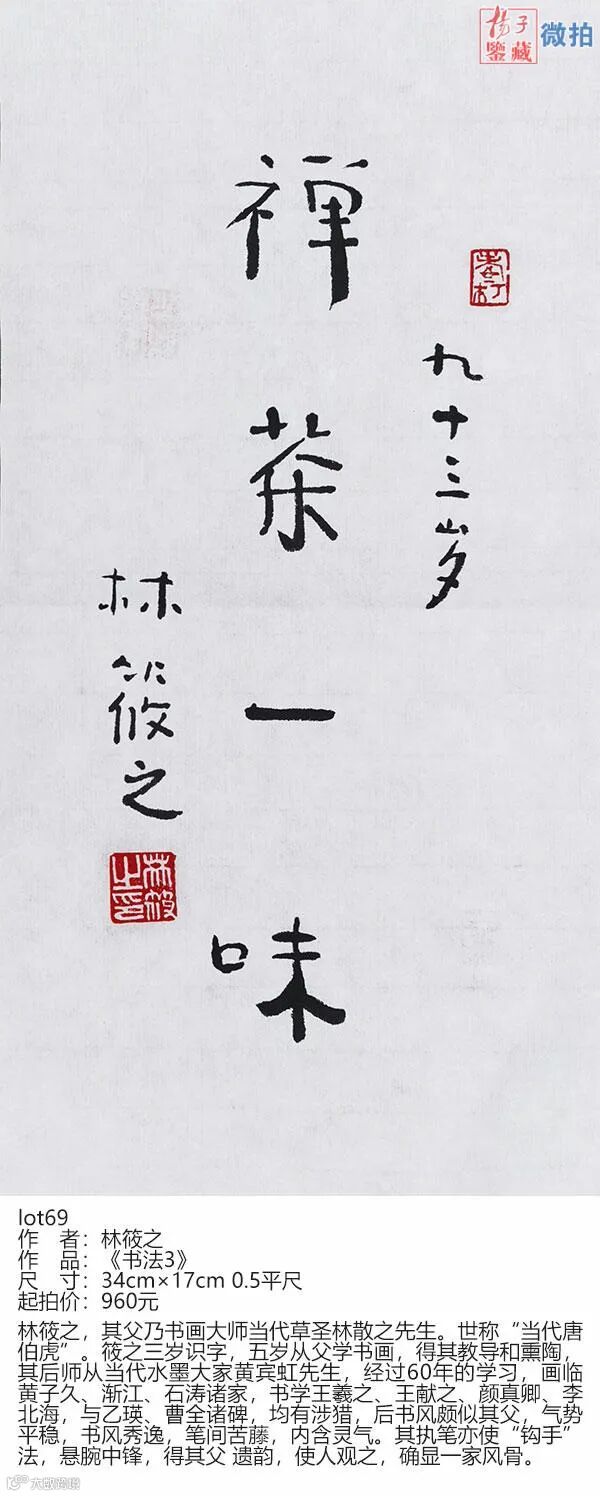 杨子
鉴藏
微拍
禅茶一味
九十三岁
林筱之
林筱
之印
lot69
作 者：林筱之
作 品：《书法3》
尺 寸：34cm×17cm 0.5平尺
起拍价：960元
林筱之，其父乃书画大师当代草圣林散之先生。世称“当代唐
伯虎”。筱之三岁识字，五岁从父学书画，得其教导和熏陶，
其后师从当代水墨大家黄宾虹先生，经过60年的学习，画临
黄子久、渐江、石涛诸家，书学王羲之、王献之、颜真卿、李
北海，与乙瑛、曹全诸碑，均有涉猎，后书风颇似其父，气势
平稳，书风秀逸，笔间苦藤，内含灵气。其执笔亦使“钩手”
法，悬腕中锋，得其父 遗韵，使人观之，确显一家风骨。
大数跨境